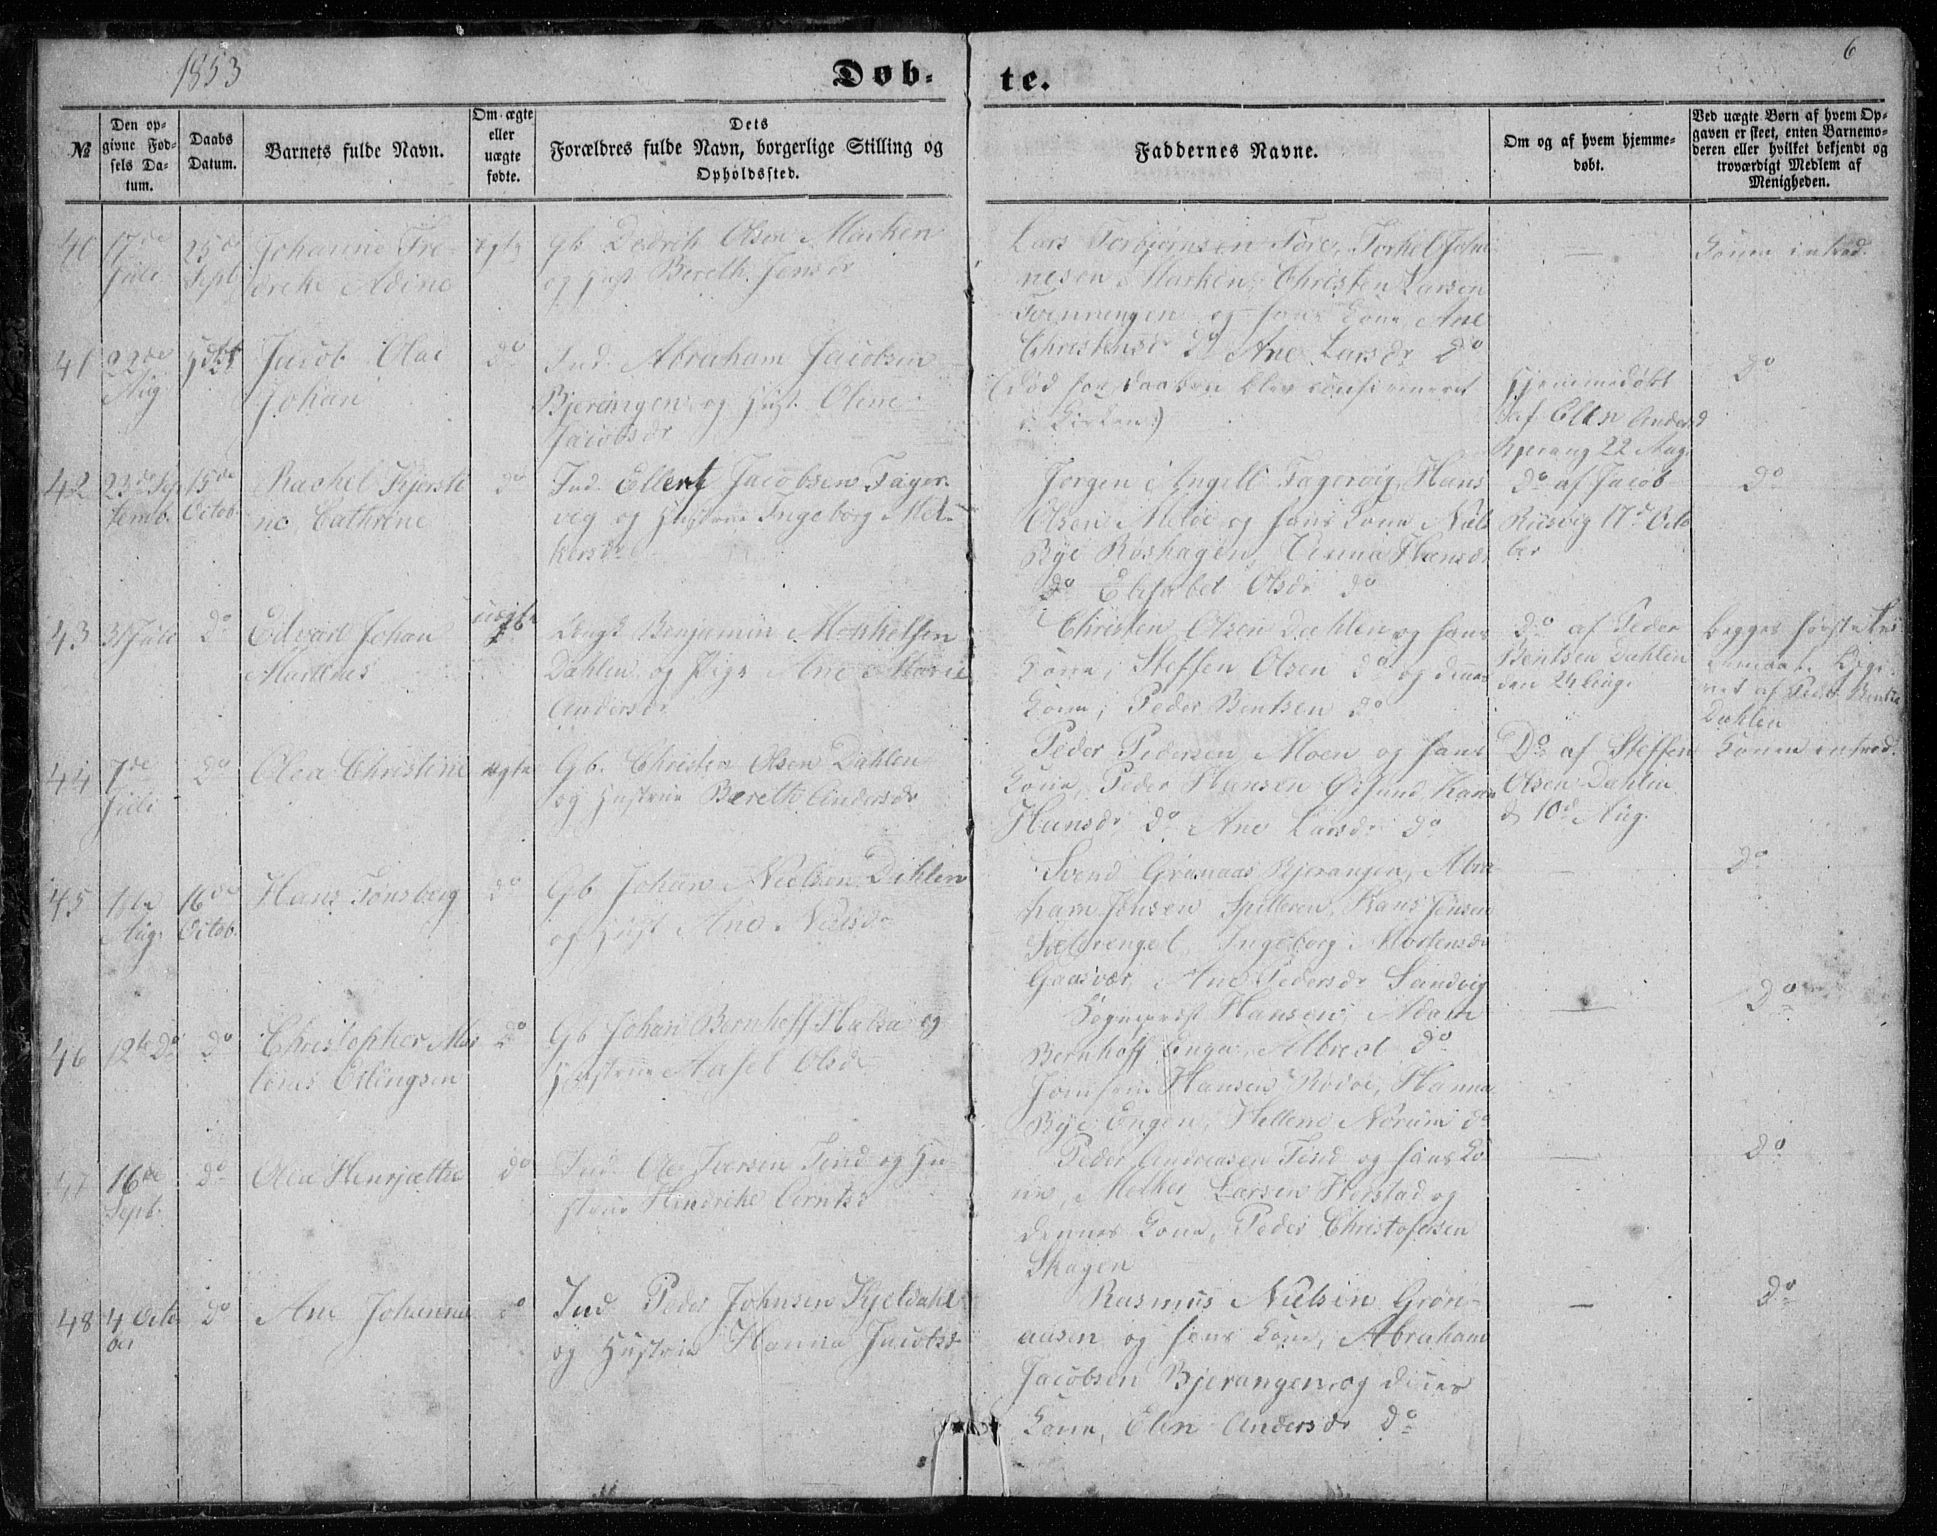 1853
Døb-
te.
6
№
Den op-
givne Fød-
sels Da-
tum.
Daabs
Datum.
Barnets fulde Navn.
Om ægte
eller
uægte
fødte.
Dets
Forældres fulde Navn, borgerlige Stilling og
Opholdssted.
Faddernes Navne.
Om og af hvem hjemme-
døbt.
Ved uægte Børn af hvem Op-
gaven er skeet, enten Barnemo-
deren eller hvilket bekjendt og
troværdigt Medlem af
Menigheden.
40
17de
Juli
25de
Sept
Johanne Fre-
drike Adine
ægte
Gb. Dedrik Olsen Marken
og Hust Bereth Jensdr
Lars Torbjørnsen Fore, Torkel Johan
nesen Marken, Christen Larsen
Tvenningen og hans Kone, Ane
Christensdr Do Ane Larsdr Do
—
Konen introd.
41
22de
Aug
Jacob Olai
Johan
Do
Ind. Abraham Jacobsen
Bjerangen og Hust. Oline
Jacobsdr
(Død før Daaben blev confirmeret
i Kirken)
Hjemmedøbt
af Elen Andersd
Bjerang 22 Aug.
Do
42
23de Sep
temb.
15de
Octob
Rachel Kjersti
ne Cathrine
do
Ind. Ellert Jacobsen Fager-
vig og Hustrue Ingeborg Mel-
kersdr
Jørgen Angell Fagervig, Hans
Olsen Meløe og hans Kone, Niels
Bye Røshagen, Hansdr
Do Elisabet Olsdr Do
Do af Jacob
Riisvig 17de Octo
ber
Do
43
31 Juli
Do
Edvard Johan
Martines
uægte
Ungk Benjamin Mikkelsen
Dahlen og Pige Ane Marie
Andersdr
Christen Olsen Dahlen og hans
Kone, Steffen Olsen Do og dennes
Kone, Peder Bentsen Do
Do af Peder
Bentsen Dahlen
den 24 Aug.
Begges første Lei
ermaal. Opgi
vet af Peder Bentse
Dahlen
44
7de
Juli
Do
Olea Christine
ægte
Gb. Christen Olsen Dahlen
og Hustrue Bereth Andersdr
Peder Pedersen Moen og hans
Kone, Peder Hansen Ørsund, Karen
Hansdr Do Ane Larsdr Do
Do af Steffen
Olsen Dahlen
d 10d Aug.
Konen introd.
45
Aug.
16de
Octob.
Hans Tønsberg
do
Gb Johan Nielsen Dahlen
og Hust Ane Nielsdr
Svend Grønaas Bjerangen, Abra
ham Jensen Spilderen, Hans Jensen
Selvenget Ingeborg Mortensdr
Gaasvær, Ane Pedersdr Sandvig
—
Do
46
12te Do
Do
Christopher Mar
tinus Ellingsen
Do
Gb Johan Bernhoff Halsa og
Hustrue Aasel Olsdr
Sogneprest Hansen, Adam
Bernhoff Engen, Albred Do
Jomfrue Hansen Rødøe, Hanna
Bye Engen, Hellene Norum do
—
Do
47
16de
Septb.
Do
Olea Henrjette
do
Ind Ole Iversen Tend og Hu-
strue Hendrike Berntsd
Peder Andreasen Tend og hans Ko-
ne, Melker Larsen Horstad og
dennes Kone, Peder Christofersen
Skagen
—
Do
48
4 Octo
ber
Do
Ane Johanna
do
Ind Peder Johnsen Kjeldahl
og Hustrue Hanna Jacobsd
Rasmus Nielsen Grøn-
aasen og hans Kone, Abraham
Jacobsen Bjerangen og dennes
Kone, Elen Andersdr Do
—
Do